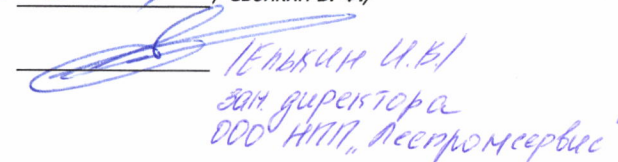 /Елькин И.В/
зам. директора
ООО НПП „Леспромсервис"